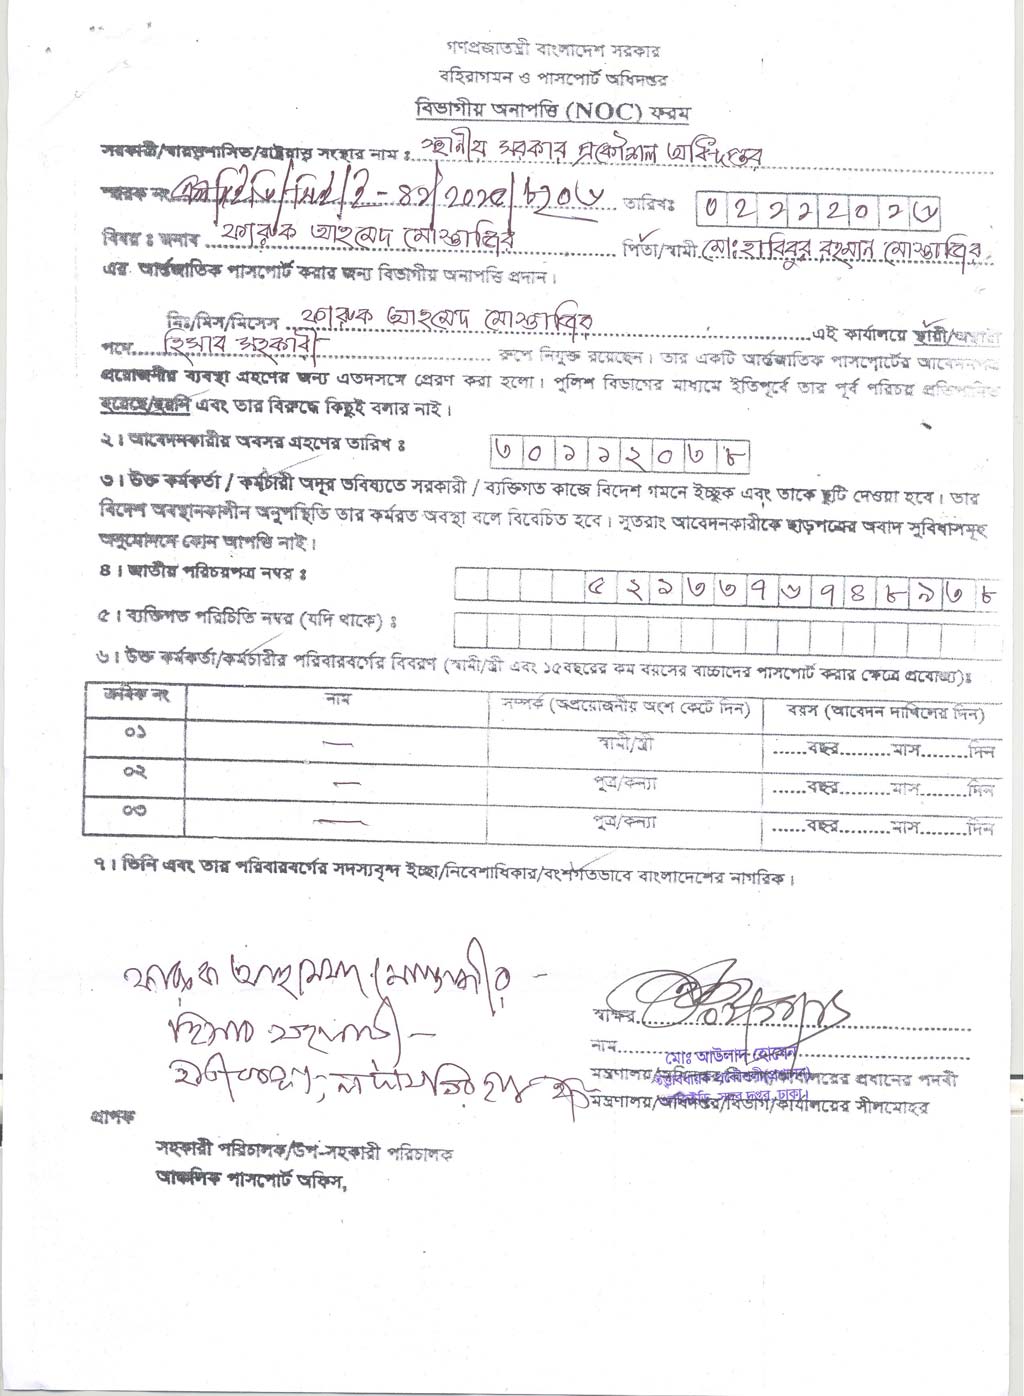 গণপ্রজাতন্ত্রী বাংলাদেশ সরকার
বহিরাগমন ও পাসপোর্ট অধিদপ্তর
বিভাগীয় অনাপত্তি (NOC) ফরম
সরকারী/স্বায়ত্তশাসিত/রাষ্ট্রায়ত্ত সংস্থার নাম : স্থানীয় সরকার প্রকৌশল অধিদপ্তর
স্মারক নং তারিখঃ
বিষয় : জনাব ফারুক আহমেদ মোস্তাফির পিতা/স্বামী মোঃ হাবিবুর রহমান মোস্তাফির
এর আর্ন্তজাতিক পাসপোর্ট করার জন্য বিভাগীয় অনাপত্তি প্রদান।
মিঃ/মিস/মিসেস ফারুক আহমেদ মোস্তাফির এই কার্যালয়ে স্থায়ী/অস্থায়ী
পদে হিসাব সহকারী রূপে নিযুক্ত রয়েছেন। তার একটি আর্ন্তজাতিক পাসপোর্টের আবেদনপত্র
প্রয়োজনীয় ব্যবস্থা গ্রহণের জন্য এতদসঙ্গে প্রেরণ করা হলো। পুলিশ বিভাগের মাধ্যমে ইতিপূর্বে তার পূর্ব পরিচয় প্রতিপাদিত
হয়েছে/হয়নি এবং তার বিরুদ্ধে কিছুই বলার নাই।
২। আবেদনকারীর অবসর গ্রহণের তারিখ : ৩০১১২০৩৮
৩। উক্ত কর্মকর্তা / কর্মচারী অদূর ভবিষ্যতে সরকারী / ব্যক্তিগত কাজে বিদেশ গমনে ইচ্ছুক এবং তাকে ছুটি দেওয়া হবে। তার
বিদেশ অবস্থানকালীন অনুপস্থিতি তার কর্মরত অবস্থা বলে বিবেচিত হবে। সুতরাং আবেদনকারীকে ছাড়পত্রের অবাদ সুবিধাসমূহ
অনুমোদনে কোন আপত্তি নাই।
৪। জাতীয় পরিচয়পত্র নম্বর : ৫২১৩৩৭৬৭৪৮৯৩৮
৫। ব্যক্তিগত পরিচিতি নম্বর (যদি থাকে) :
৬। উক্ত কর্মকর্তা/কর্মচারীর পরিবারবর্গের বিবরণ (স্বামী/স্ত্রী এবং ১৫বছরের কম বয়সের বাচ্চাদের পাসপোর্ট করার ক্ষেত্রে প্রযোজ্য):
ক্রমিক নং নাম সম্পর্ক (অপ্রয়োজনীয় অংশ কেটে দিন) বয়স (আবেদন দাখিলের দিন)
০১ — স্বামী/স্ত্রী ......বছর.........মাস........দিন
০২ — পুত্র/কন্যা ......বছর.........মাস........দিন
০৩ — পুত্র/কন্যা ......বছর.........মাস........দিন
৭। তিনি এবং তার পরিবারবর্গের সদস্যবৃন্দ ইচ্ছা/নিবেশাধিকার/বংশগতভাবে বাংলাদেশের নাগরিক।
হিসাব সহকারী
স্বাক্ষর
নাম
মোঃ আউলাদ হোসেন
মন্ত্রণালয়/অধিদপ্তর/বিভাগ/কার্যালয়ের প্রধানের পদবী
মন্ত্রণালয়/অধিদপ্তর/বিভাগ/কার্যালয়ের সীলমোহর
প্রাপক
সহকারী পরিচালক/উপ-সহকারী পরিচালক
আঞ্চলিক পাসপোর্ট অফিস,